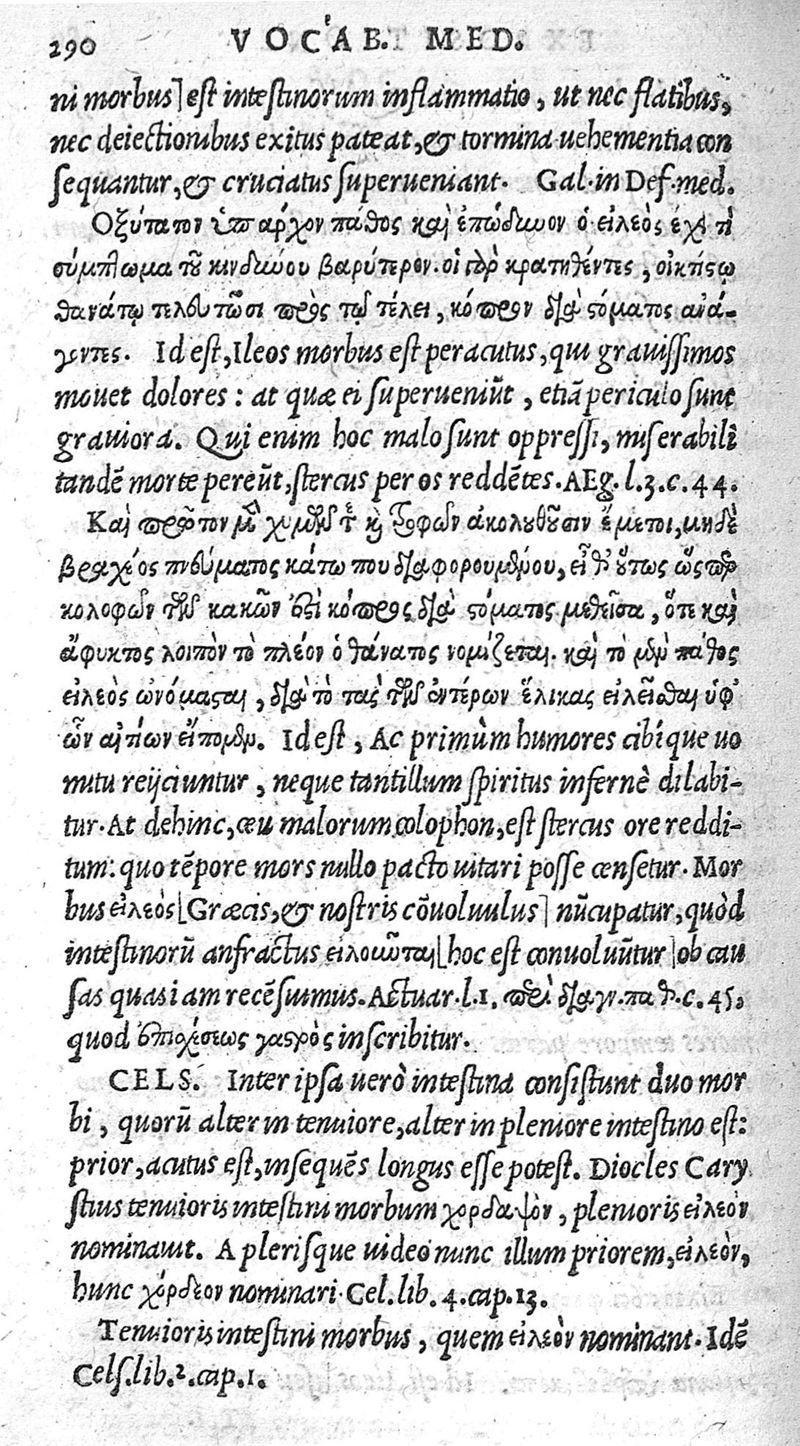 290 VOCAB. MED.
ni morbus] est intestinorum inflammatio, ut nec flatibus,
nec deiectionibus exitus pateat, & tormina uehementia con
sequantur, & cruciatus superueniant. Gal. in Def. med.
Ὀξύτατον ὑπάρχον πάθος καὶ ἐπώδυνον ὁ εἰλεὸς ἔχει τὶ
σύμπτωμα τοῦ κινδύνου βαρύτερον. οἱ γὰρ κρατηθέντες, οἰκτίστῳ
θανάτῳ τελευτῶσι πρὸς τῷ τέλει, κόπρον διὰ στόματος ἀνά-
γοντες. Id est, Ileos morbus est peracutus, qui grauissimos
mouet dolores: at quæ ei superueniũt, etiã periculo sunt
grauiora. Qui enim hoc malo sunt oppressi, miserabili
tandẽ morte pereũt, stercus per os reddẽtes. AEg. l. 3. c. 44.
Καὶ πρῶτον μὲν χυμῶν τὲ καὶ τροφῶν ἀκολουθοῦσιν ἔμετοι, μηδὲ
βραχέος πνεύματος κάτω που διαφορουμένου, εἶθ' οὕτως ὥσπερ
κολοφὼν τῶν κακῶν ἐστὶ κόπρος διὰ στόματος μεθεῖσα, ὅτε καὶ
ἄφυκτος λοιπὸν τὸ πλέον ὁ θάνατος νομίζεται. καὶ τὸ μὲν πάθος
εἰλεὸς ὠνόμασται, διὰ τὸ τὰς τῶν ἐντέρων ἕλικας εἰλεῖσθαι ὑφ'
ὧν αἰτίων εἴπομεν. Id est, Ac primùm humores cibique uo
mitu reijciuntur, neque tantillum spiritus infernè dilabi-
tur. At dehinc, ceu malorum colophon, est stercus ore reddi-
tum: quo tẽpore mors nullo pacto uitari posse censetur. Mor
bus εἰλεὸς [Græcis, & nostris cõuoluulus] nũcupatur, quòd
intestinorũ anfractus εἰλοιῶται [hoc est conuoluũtur] ob cau
sas quas iam recẽsuimus. Actuar. l. 1. περὶ διαγν. παθ. c. 45.
quod ἐπισχέσεως γαστρὸς inscribitur.
CELS. Inter ipsa uerò intestina consistunt duo mor
bi, quorũ alter in tenuiore, alter in pleniore intestino est:
prior, acutus est, insequẽs longus esse potest. Diocles Cary
stius tenuioris intestini morbum χορδαψὸν, plenioris εἰλεὸν
nominauit. A plerisque uideo nunc illum priorem, εἰλεὸν,
hunc χόρδεον nominari. Cel. lib. 4. cap. 13.
Tenuioris intestini morbus, quem εἰλεὸν nominant. Idẽ
Cels. lib. 2. cap. 1.